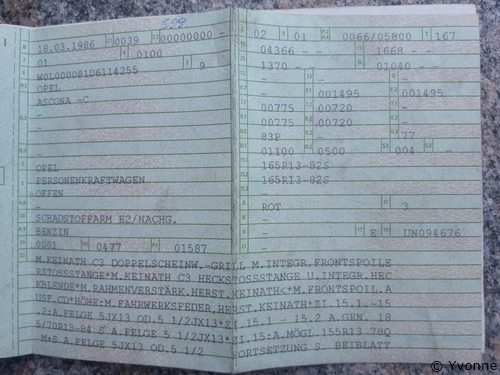 18.03.1986 0039 00000000 -
01 0100
W0L000081D6114255 9
OPEL
ASCONA -C
-
-
OPEL
PERSONENKRAFTWAGEN
OFFEN
-
SCHADSTOFFARM E2/NACHG.
BENZIN
0001 0477 01587
02 01 0086/05800 167
04366 - 1668 -
1370 - 01040 -
- -
- 001495 001495
00775 00720 -
00775 00720 -
83P - 77
01100 0500 004
165R13-82S
165R13-82S
-
ROT 3
-
- E UN094676
M.KEINATH C3 DOPPELSCHEINW.-GRILL M.INTEGR.FRONTSPOILE
RSTOSSSTANGE*M.KEINATH C3 HECKSTOSSSTANGE U.INTEGR.HEC
KBLENDE*M.RAHMENVERSTÄRK.HERST.KEINATH<*M.FRONTSPOIL.A
USF.CD*HÖHE:M.FAHRWERKSFEDER,HERST.KEINATH*ZI.15.1.-15
.2:A.FELGE 5JX13 OD.5 1/2JX13*ZI.15.1 - 15.2 A.GEN. 18
5/70R13-84 S A.FELGE 5 1/2JX13*ZI.15:A.MÖGL.155R13 78Q
M+S A.FELGE 5JX13 OD.5 1/2 FORTSETZUNG S. BEIBLATT
© Yvonne